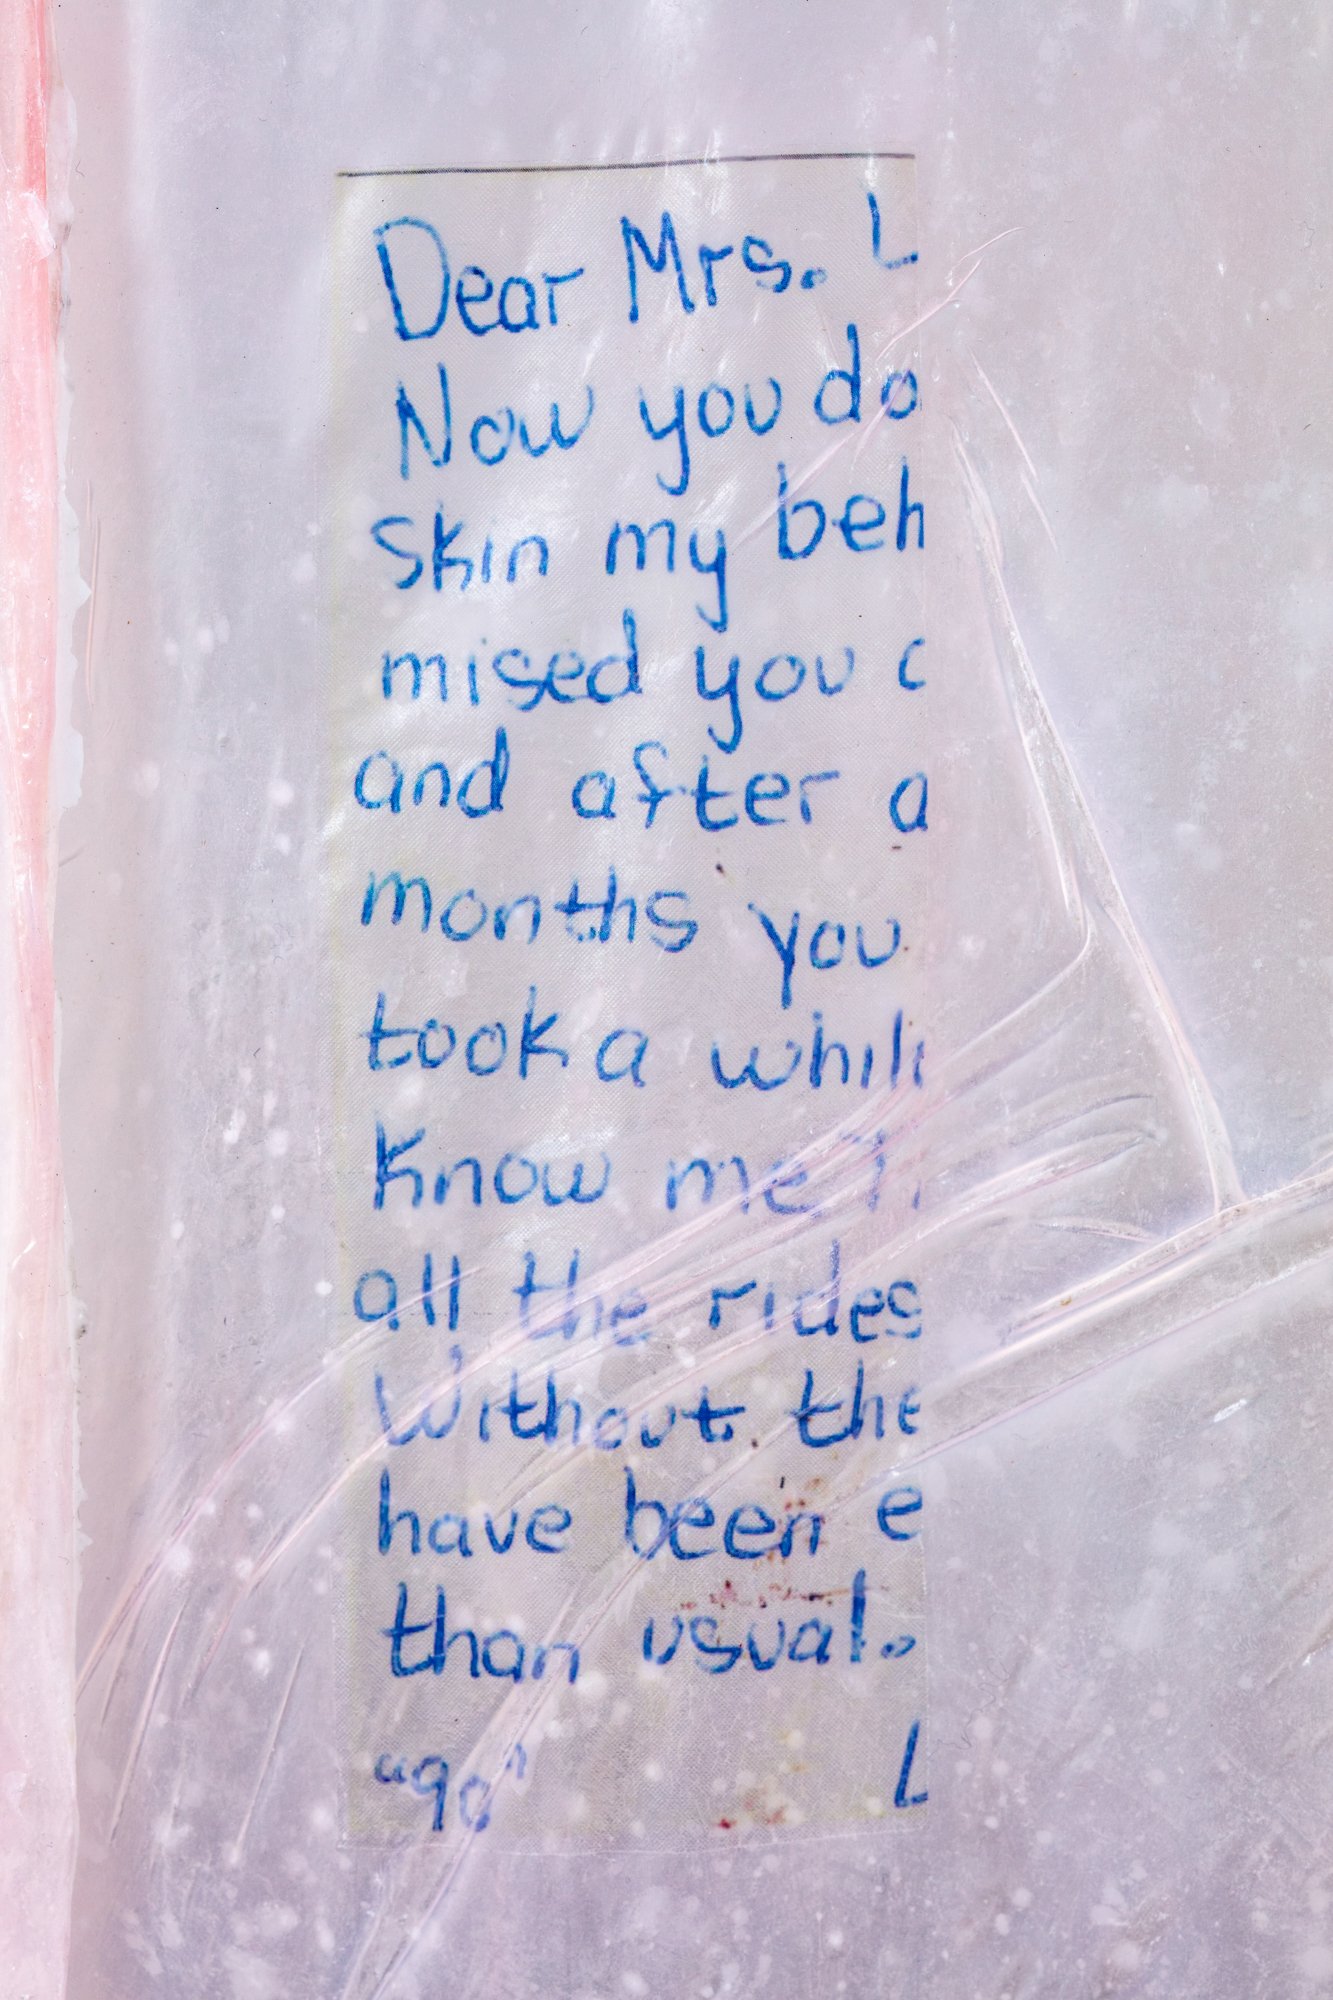 Dear Mrs. L
Now you do
skin my beh
mised you
and after a
months you
took a whil
know me
all the rides
Without the
have been e
than usual.
"90" L